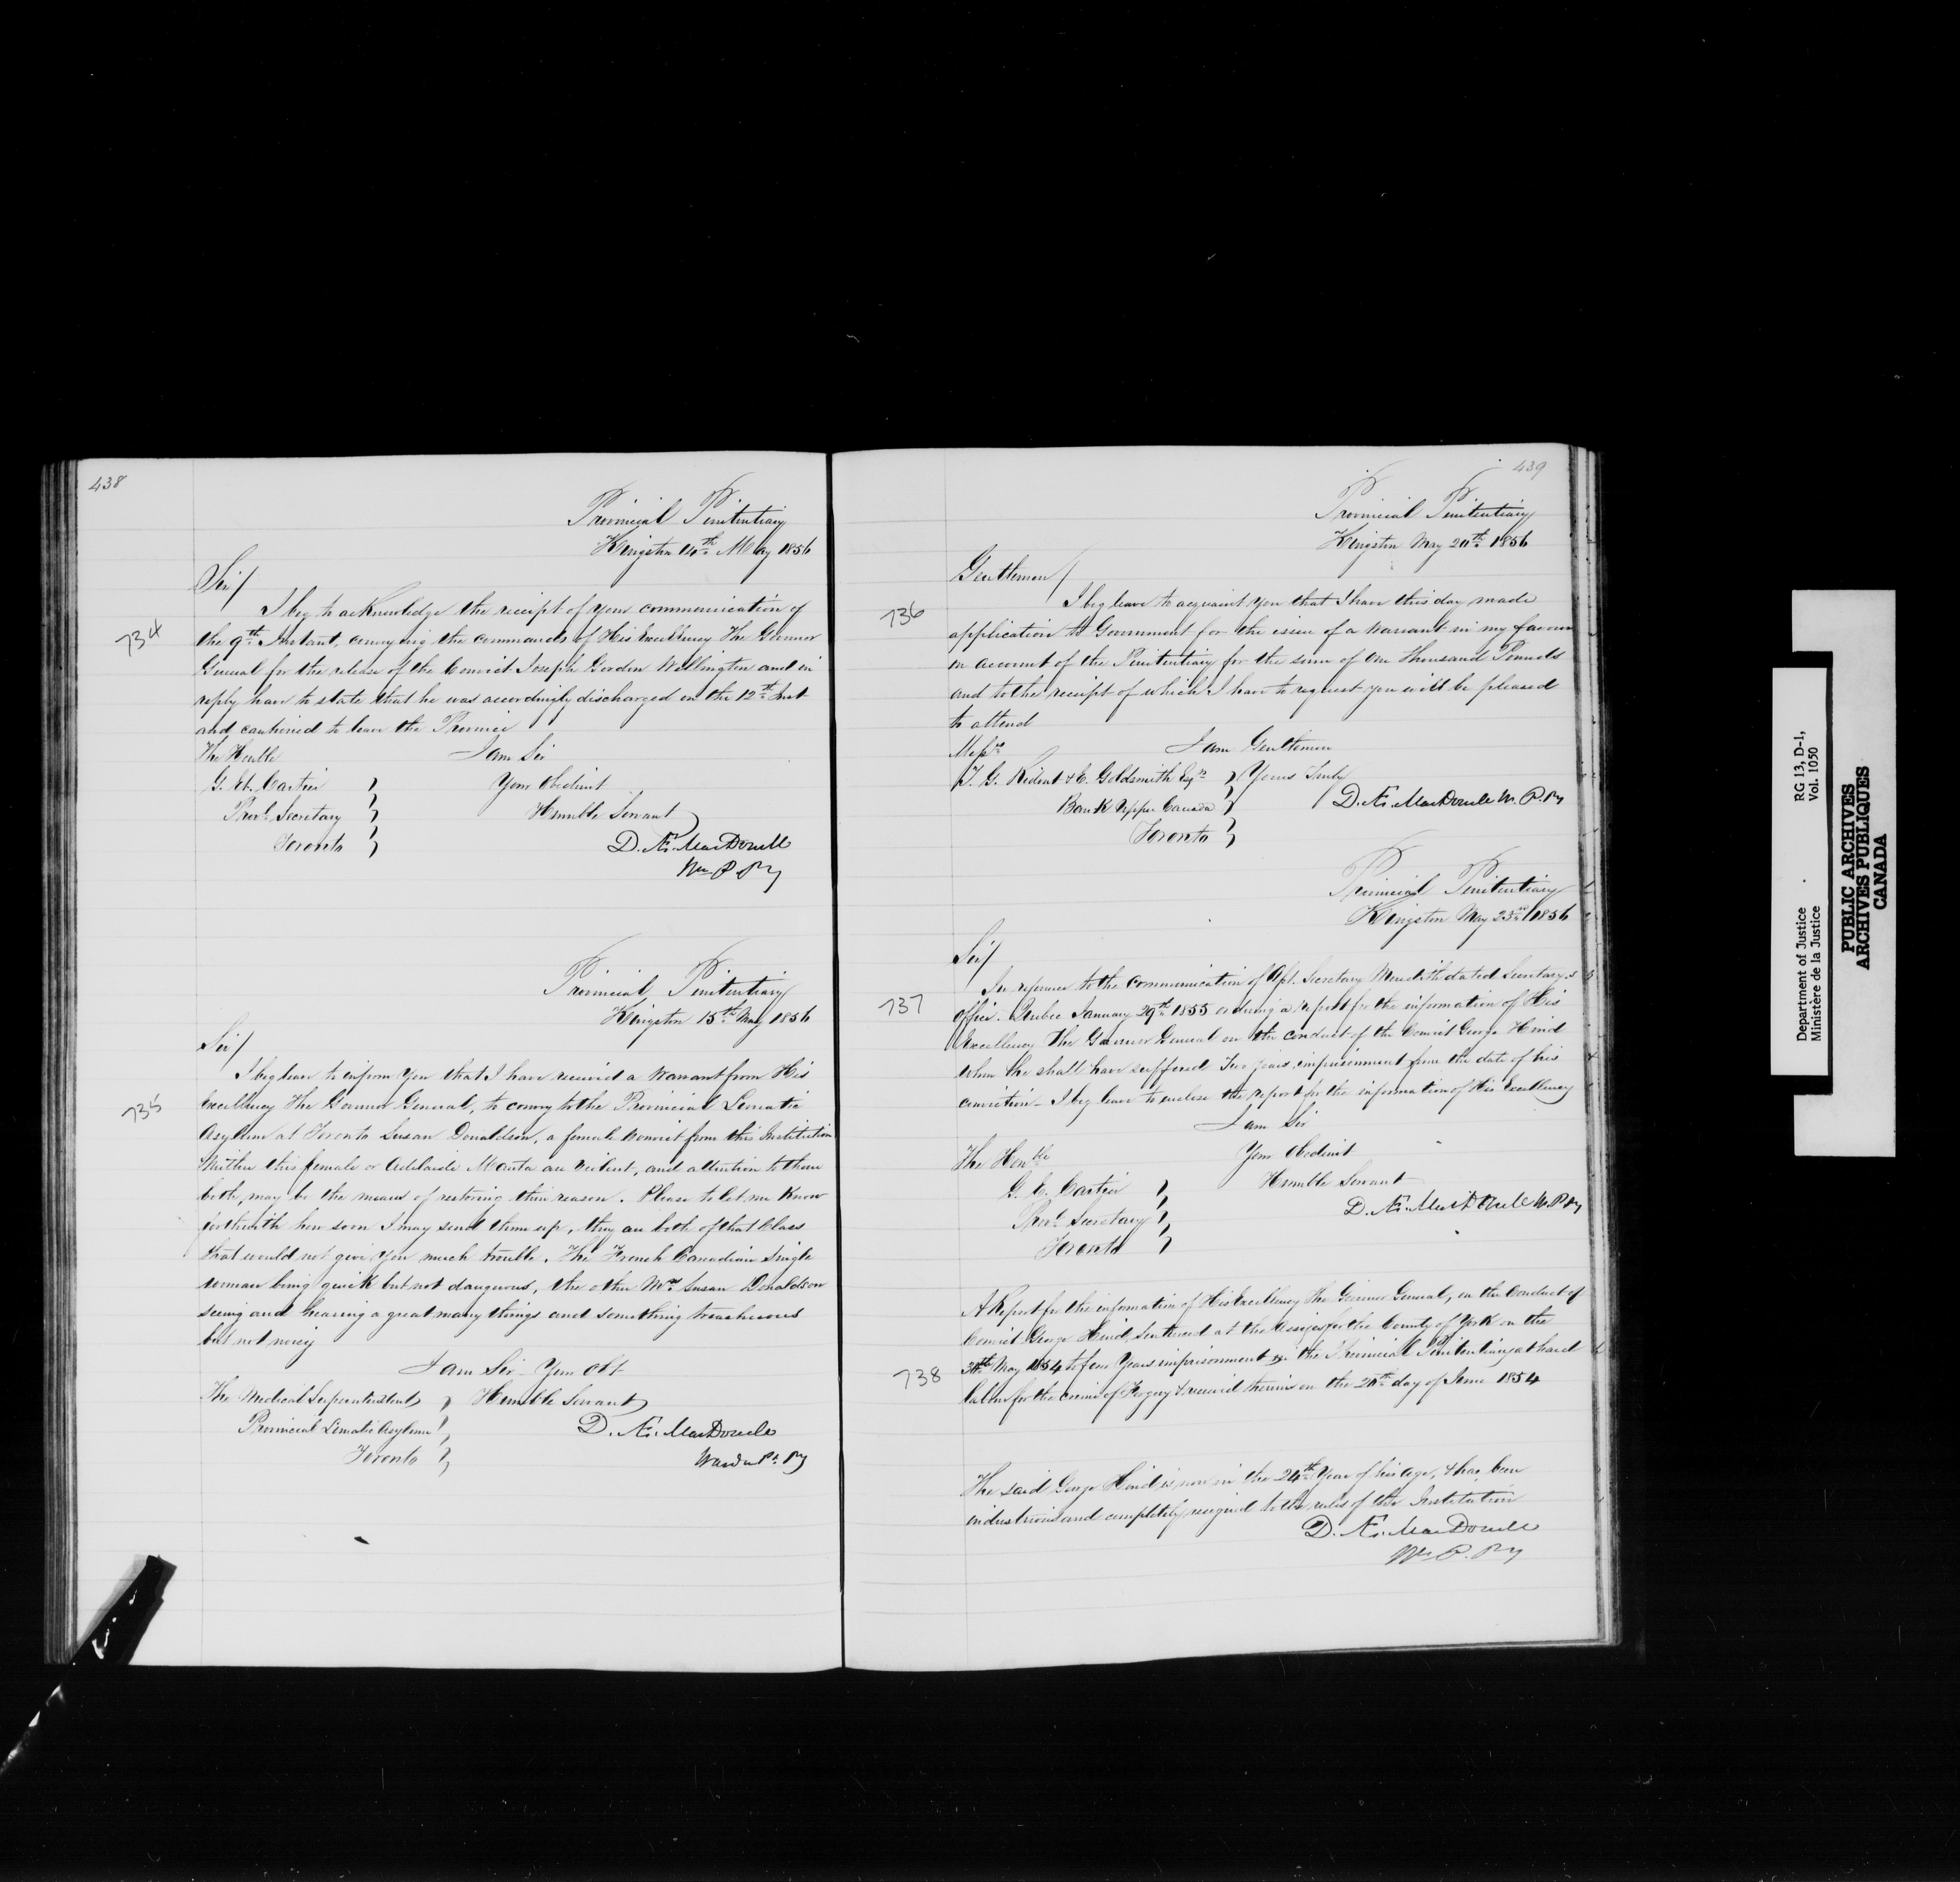 438
Provincial Penitentiary
Kingston 14th May 1856
Sir/
I beg to acknowledge the receipt of your communication of
734
the 9th Instant, conveying the commands of His Excellency The Governor
General for the release of the Convict Joseph Gordon Wellington and in
reply have to state that he was accordingly discharged on the 12th Inst
and cautioned to leave the Province
The Honble I am Sir
G. Et. Cartier Your Obedient
Provl Secretary Humble Servant
Toronto D. Æ. MacDonell
Wn P. Py
Provincial Penitentiary
Kingston 15th May 1856
Sir/
I beg leave to inform you that I have received a Warrant from His
735
Excellency The Governor General, to convey to the Provincial Lunatic
Asylum at Toronto Susan Donaldson, a female Convict from this Institution
Neither this female or Adelaide Manta are violent, and attention to them
both, may be the means of restoring their reason. Please to let me Know
forthwith how soon I may send them up, they are both of that Class
that would not give you much trouble. The French Canadian Single
woman being quick but not dangerous, the other Mrs Susan Donaldson
seeing and hearing a great many things and something treacherous
but not noisy
I am Sir Your Obt
The Medical Superintendent Humble Servant
Provincial Lunatic Asylum D. Æ. MacDonell
Toronto Warden Pl. Py
439
Provincial Penitentiary
Kingston May 20th 1856
Gentlemen/
I beg leave to acquaint you that I have this day made
736
application to Government for the issue of a Warrant in my favour
on account of the Penitentiary for the sum of One Thousand Pounds
and to the receipt of which I have to request you will be pleased
to attend
Messrs I am Gentlemen
T. G. Ridout & C. Goldsmith Esqrs Yours Truly
Bank Upper Canada D. Æ. MacDonell W. P. Py
Toronto
Provincial Penitentiary
Kingston May 23rd 1856
Sir/
In reference to the communication of Ast. Secretary Meredith dated Secretary's
737
Office. Quebec January 29th 1855 ordering a report for the information of His
Excellency The Governor General on the conduct of the Convict George Hind
when he shall have suffered Two years imprisonment from the date of his
conviction - I beg leave to enclose the report for the information of His Excellency
I am Sir
The Honble Your Obedient
G. E. Cartier Humble Servant
Provl Secretary D. Æ. MacDonell W. P. Py
Toronto
A Report for the information of His Excellency The Governor General, on the Conduct of
Convict George Hind, Sentenced at the Assizes for the County of York on the
738
30th May 1854 to four Years imprisonment in the Provincial Penitentiary at hard
labour for the crime of Forgery & received therein on the 20th day of June 1854
The said George Hind is now in the 24th Year of his age, & has been
industrious and completely resigned to the rules of this Institution
D. Æ. MacDonell
Wn P. Py
RG 13, D-1,
Vol. 1050
Department of Justice
Ministère de la Justice
PUBLIC ARCHIVES
ARCHIVES PUBLIQUES
CANADA